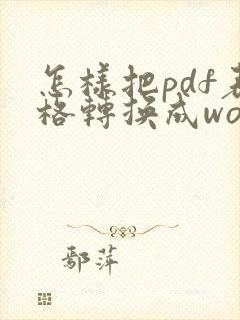 怎樣把pdf表
格轉換成wo
鄢萍